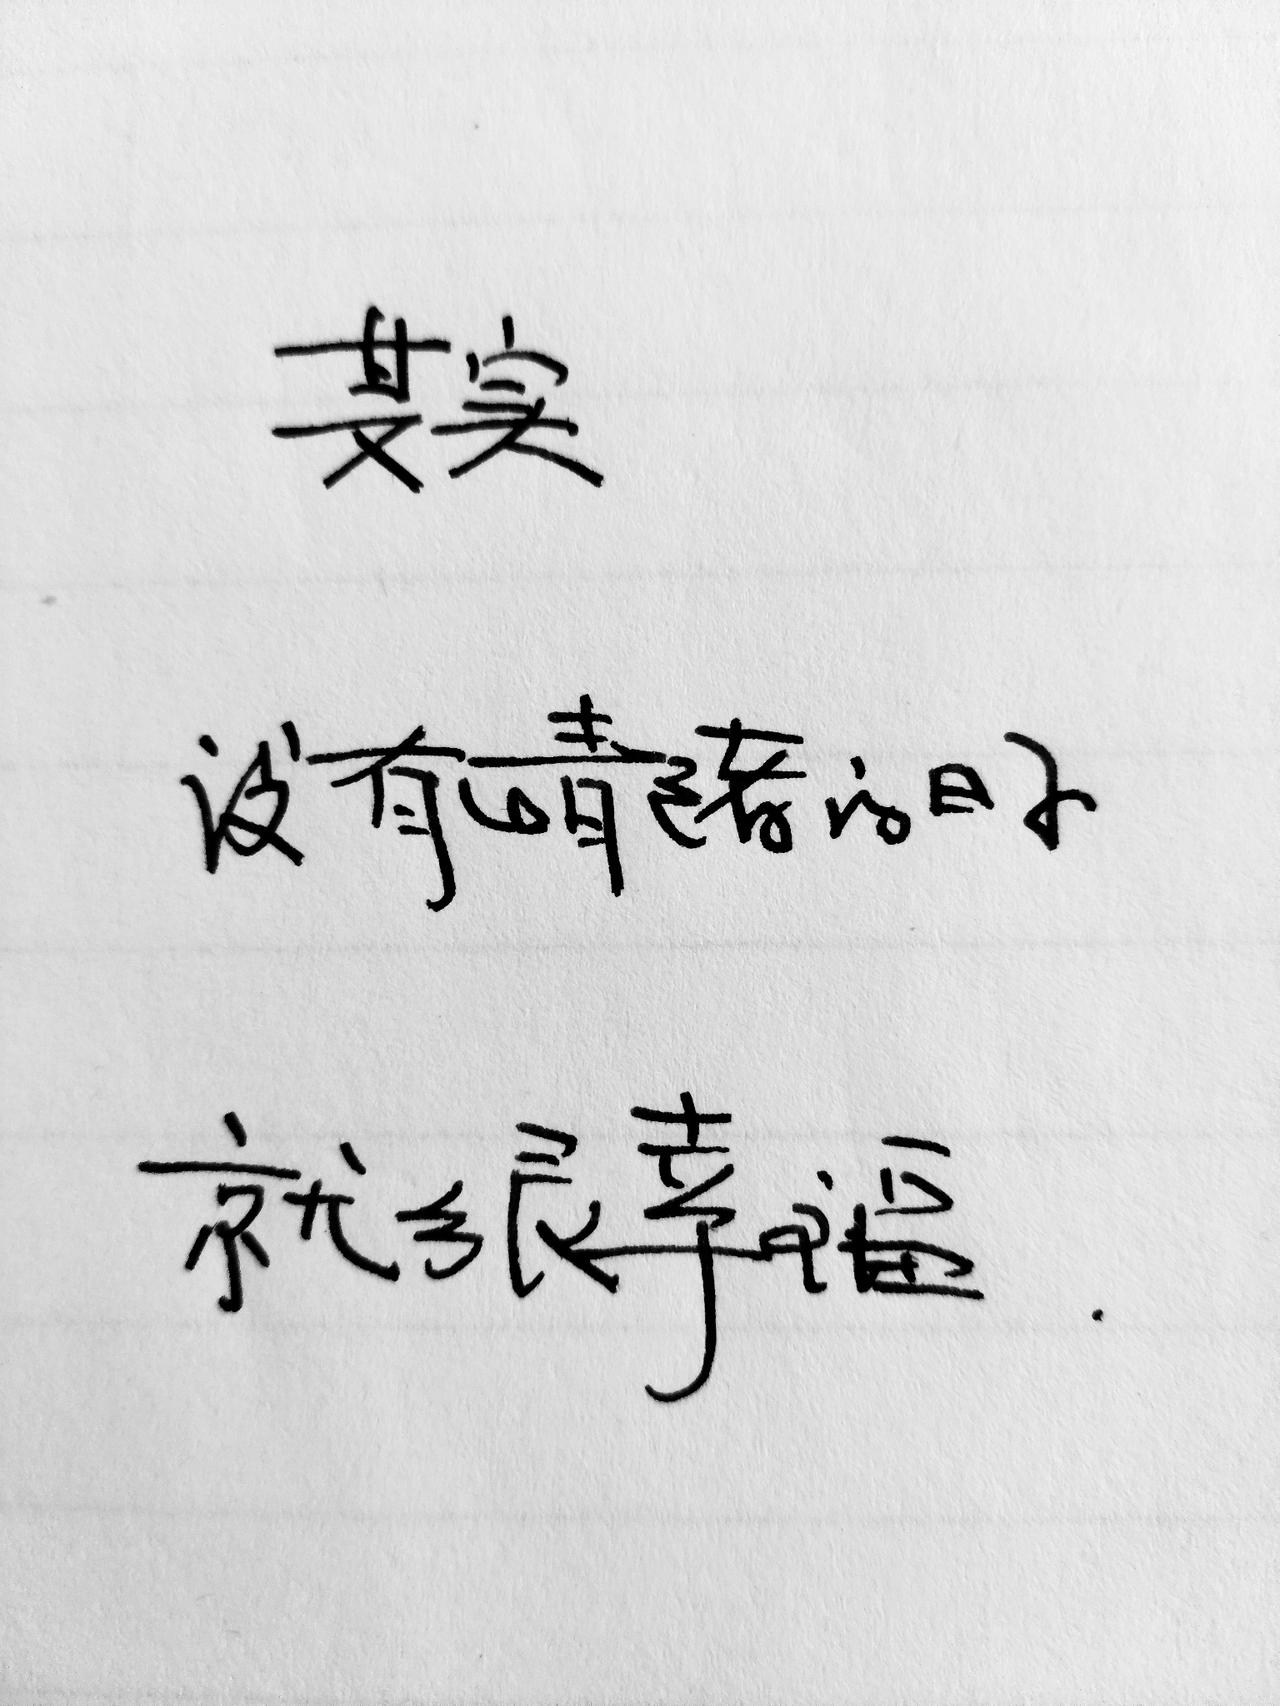 其实
没有情绪的日子
就很幸福.